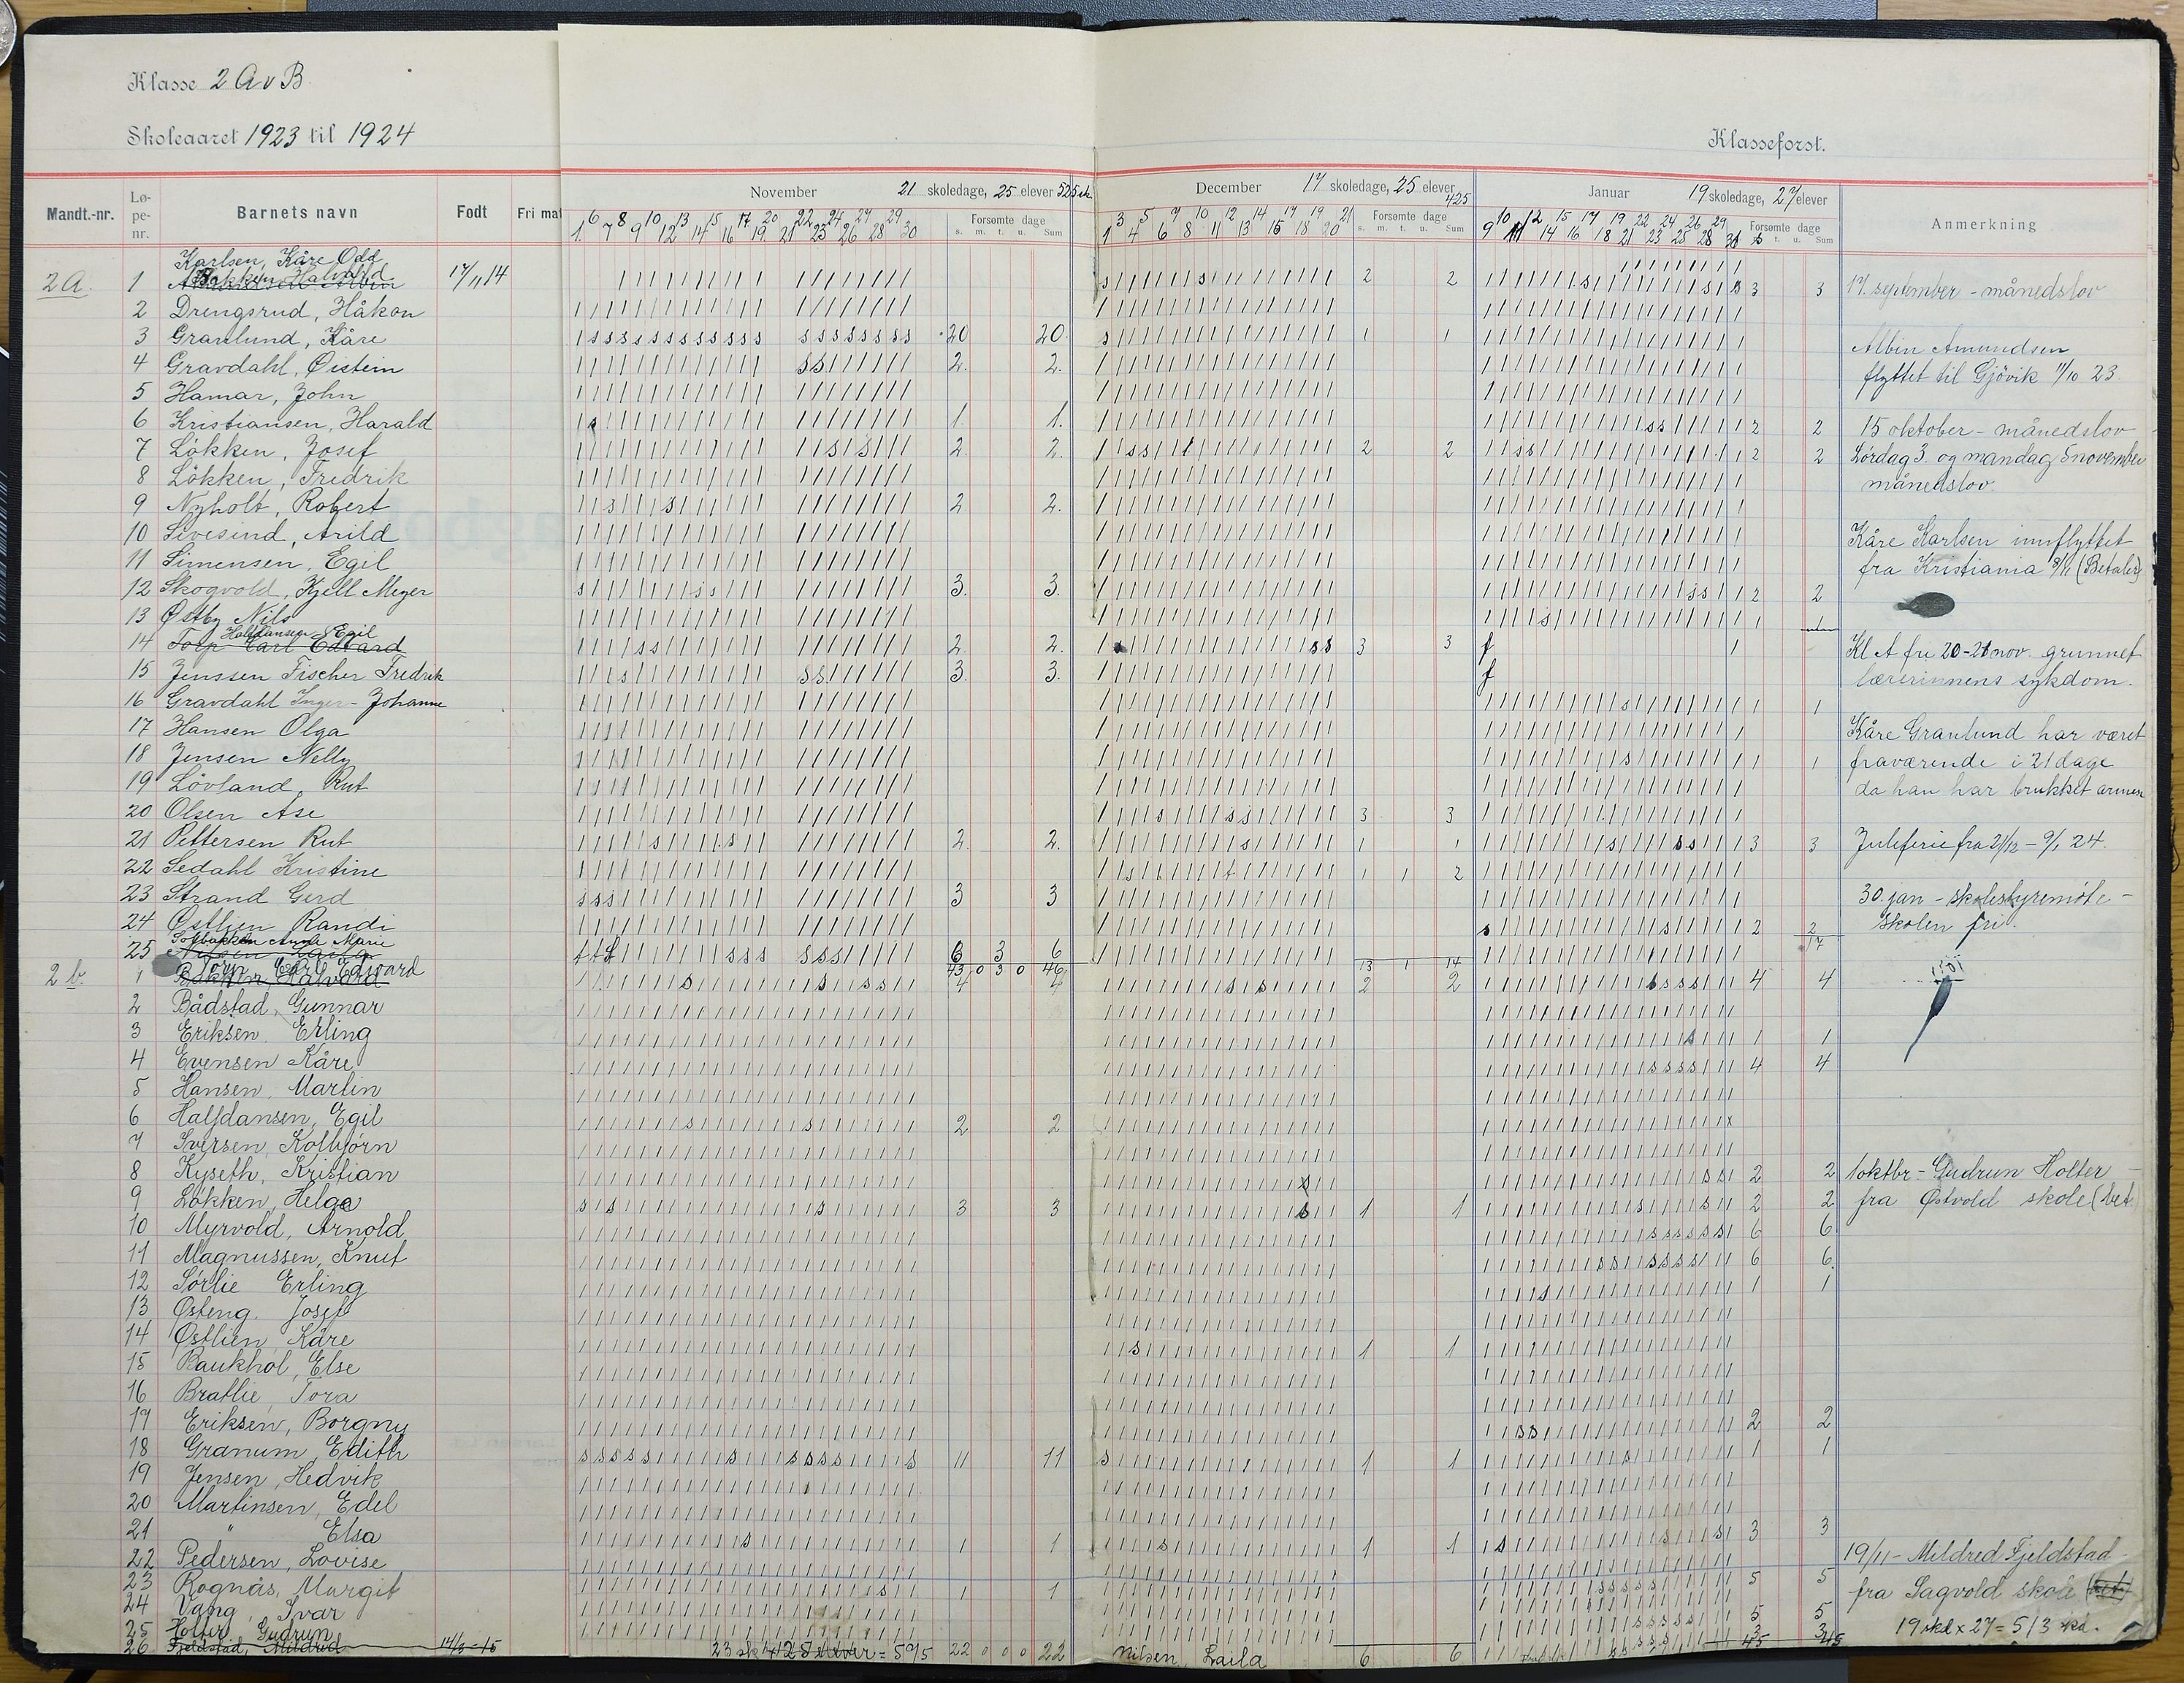 Klasse 2 A v B.
Skoleaaret 1923 til 1924
Klasseforst.
Mandt.-nr.
Lø-
pe-
nr.
Barnets navn
Født
Fri mat
November 21 skoledage, 25 elever 525 sk
1. 6 7 8 9 10 12 13 14 15 16 17 19 20 21 22 23 24 26 27 28 29 30
Forsømte dage
s. m. t. u. Sum
December 17 skoledage, 25 elever
425
1 3 4 5 6 7 8 10 11 12 13 14 15 17 18 19 20 21
Forsømte dage
s. m. t. u. Sum
Januar 19 skoledage, 27 elever
9 10 11 12 14 15 16 17 18 19 21 22 23 24 25 26 28 29 31
Forsømte dage
t. u. Sum
Anmerkning
Karlsen, Kåre Odd
2 A. 1 17/11 14 2 2 3 3
2 Drengsrud, Håkon
3 Granlund, Kåre 20 20. 1 1
4 Gravdahl, Øistein 2. 2.
5 Hamar, John
6 Kristiansen, Harald 1. 1. 2 2
7 Løkken, Josef 2. 2. 2 2 2 2
8 Løkken, Fredrik
9 Nyholt, Robert 2 2.
10 Sivesind, Arild
11 Simensen, Egil
12 Skogvold, Kjell Meyer 3. 3. 2 2
13 Østby Nils 1 1
Halfdansen Egil
14 Torp Carl Edvard 2 2. 3 3
15 Jenssen Fischer Fredrik 3. 3.
16 Gravdahl Inger-Johanne 1 1
17 Hansen Olga
18 Jensen Nelly 1 1
19 Løvland, Rut
20 Olsen Åse 3 3
21 Pettersen Rut 2. 2. 1 1 3 3
22 Sedahl Kristine 1 1 2
23 Strand Gerd 3 3
24 Østlien Randi 2 2
Solbakken Anna Marie
25 6 3 6
43 0 3 0 46 13 1 14 17
Torp Carl Edvard
2 b. 1 Bakken, Halvard 4 4 2 2 4 4
2 Bådstad, Gunnar
3 Eriksen Erling 1 1
4 Evensen Kåre 4 4
5 Hansen, Martin
6 Halfdansen, Egil 2 2
7 Iversen, Kolbjørn
8 Kyseth, Kristian 2 2
9 Løkken, Helge 3 3 1 1 2 2
10 Myrvold, Arnold 6 6
11 Magnussen, Knut 6 6.
12 Sørlie Erling 1 1
13 Østeng. Josef
14 Østlien, Kåre 1 1
15 Baukhol, Else
16 Bratlie, Tora
17 Eriksen, Borgny 2 2
18 Granum, Edith 11 11 1 1 1 1
19 Jensen, Hedvik
20 Martinsen, Edel
21 " Elsa 1 1 1 1 3 3
22 Pedersen, Lovise
23 Rognås, Margit 1 1 5 5
24 Vang, Ivar 5 5
25 Holter Gudrun 3 3
26 Fjeldstad, Mildred 14/3-15
575 22 0 0 0 22 Nilsen, Laila 6 6 45 45
17. september - månedslov
Albin Amundsen
flyttet til Gjøvik 11/10 23.
15 oktober - månedslov
Lørdag 3. og mandag 5 november
månedslov.
Kåre Karlsen innflyttet
fra Kristiania 8/11 (Betaler)
Kl A fri 20-21 nov. grunnet
lærerinnens sykdom.
Kåre Granlund har været
fraværende i 21 dage
da han har brukket armen
Juleferie fra 21/12 - 9/1 24.
30. jan - skolestyremøte -
skolen fri.
1 oktbr - Gudrun Holter -
fra Østvold skole (bet.
19/11 - Mildred Fjeldstad
fra Sagvold skole (bet)
19 skd x 27 = 513 skd.